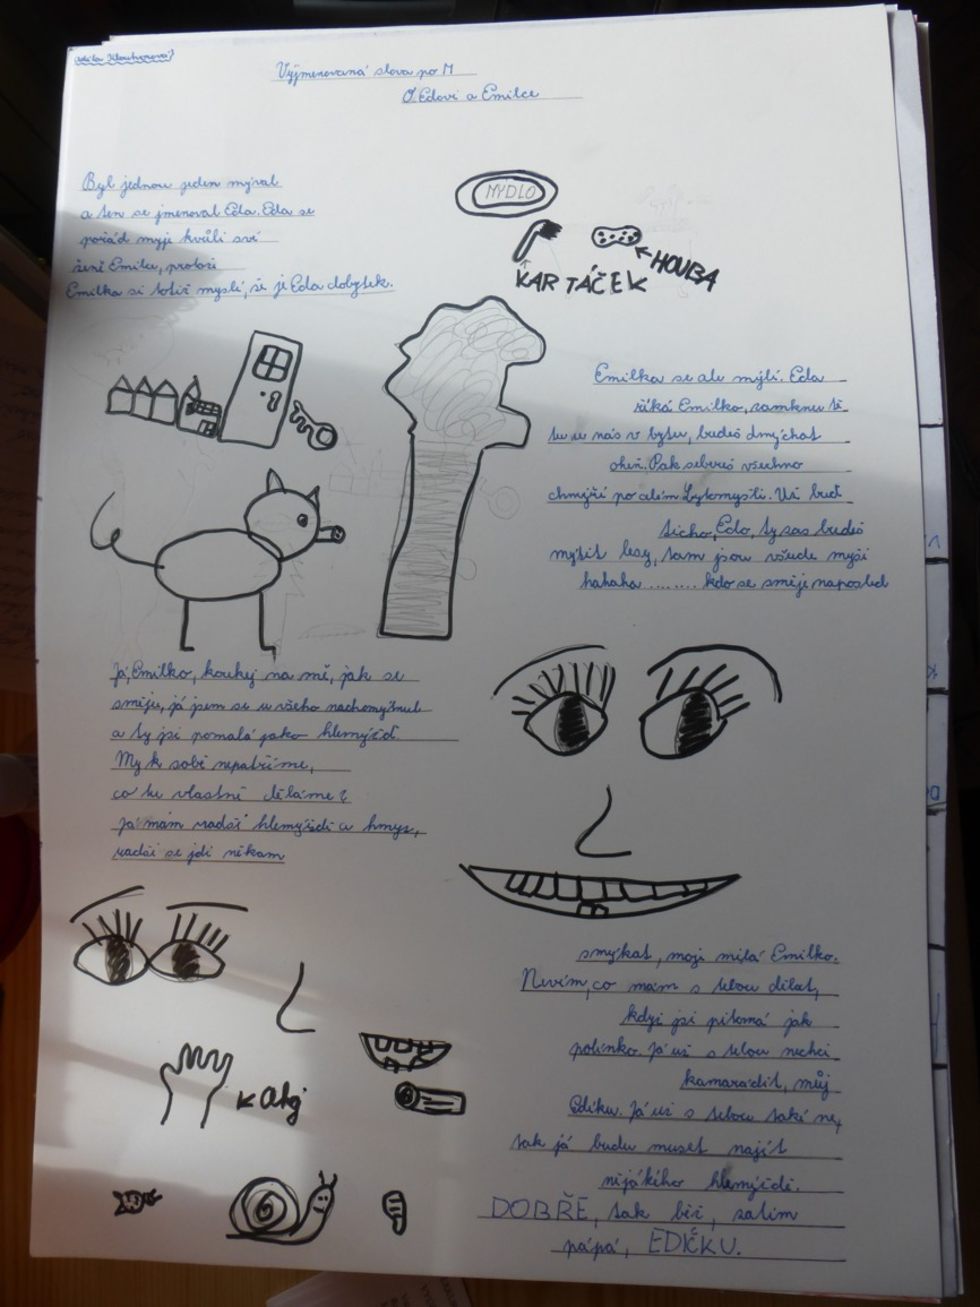 Vyjmenovaná slova po M
O Edovi a Emilce
Byl jednou jeden mýval
a ten se jmenoval Eda. Eda se
pořád myje kvůli své
ženě Emilce, protože
Emilka si totiž myslí, že je Eda dobytek.
MÝDLO
KARTÁČEK
HOUBA
Emilka se ale mýlí. Eda
říká Emilko, zamknu tě
tu u nás v bytu, budeš dmýchat
oheň. Pak sebereš všechno
chmýří po celém Lytomyšli. Už buď
ticho, Edo, ty zas budeš
mýtit lesy, tam jsou všude myši
hahaha ........ kdo se směje naposled
Já, Emilko, koukej na mě, jak se
směju, já jsem se u všeho nachomýtnul
a ty jsi pomalá jako hlemýžď.
My k sobě nepatříme,
co tu vlastně děláme?
Já mám radši hlemýždě a hmyz,
radši se jdi někam
smýkat, moji milá Emilko.
Nevím, co mám s tebou dělat,
když jsi pitomá jak
polínko. Já už s tebou nechci
kamarádit, můj
Edíku. Já už s tebou také ne,
tak já budu muset najít
nějakého hlemýždě.
DOBŘE, tak běž, zatím
pápá, EDÍČKU.